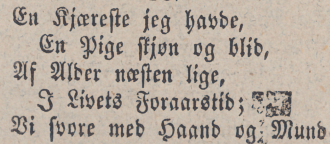 En Kjæreste jeg havde,
En Pige skjøn og blid,
Af Alder næsten lige,
I Livets Foraarstid;
Vi svore med Haand og Mund